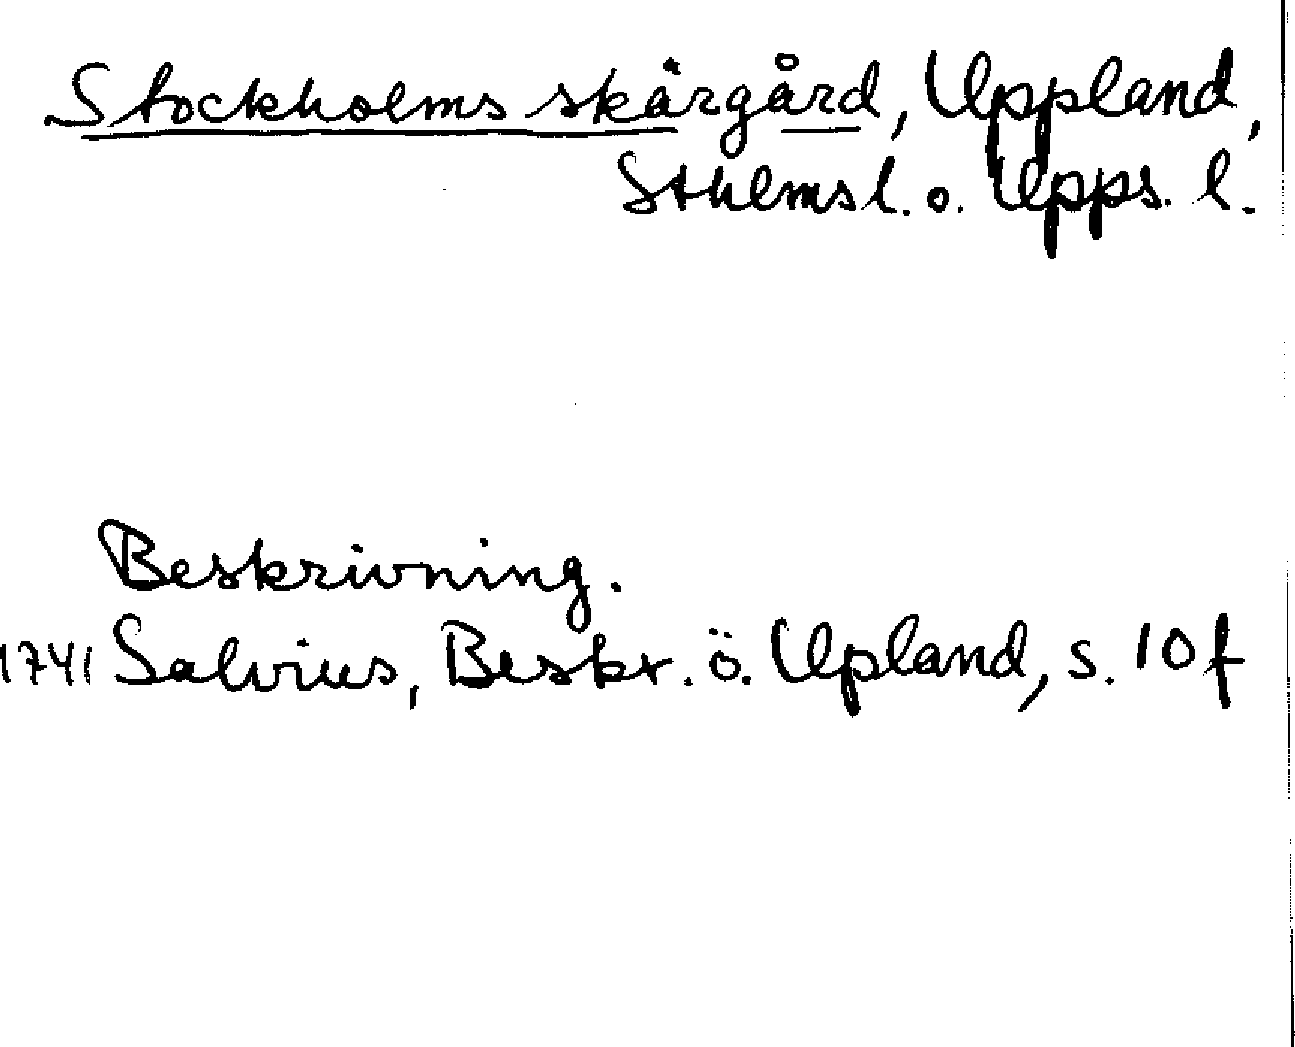 Stockholms skärgård, Uppland,
Sthlms l. o. Upps. l.
Beskrivning.
1741 Salvius, Beskr. ö. Upland, s. 10 f